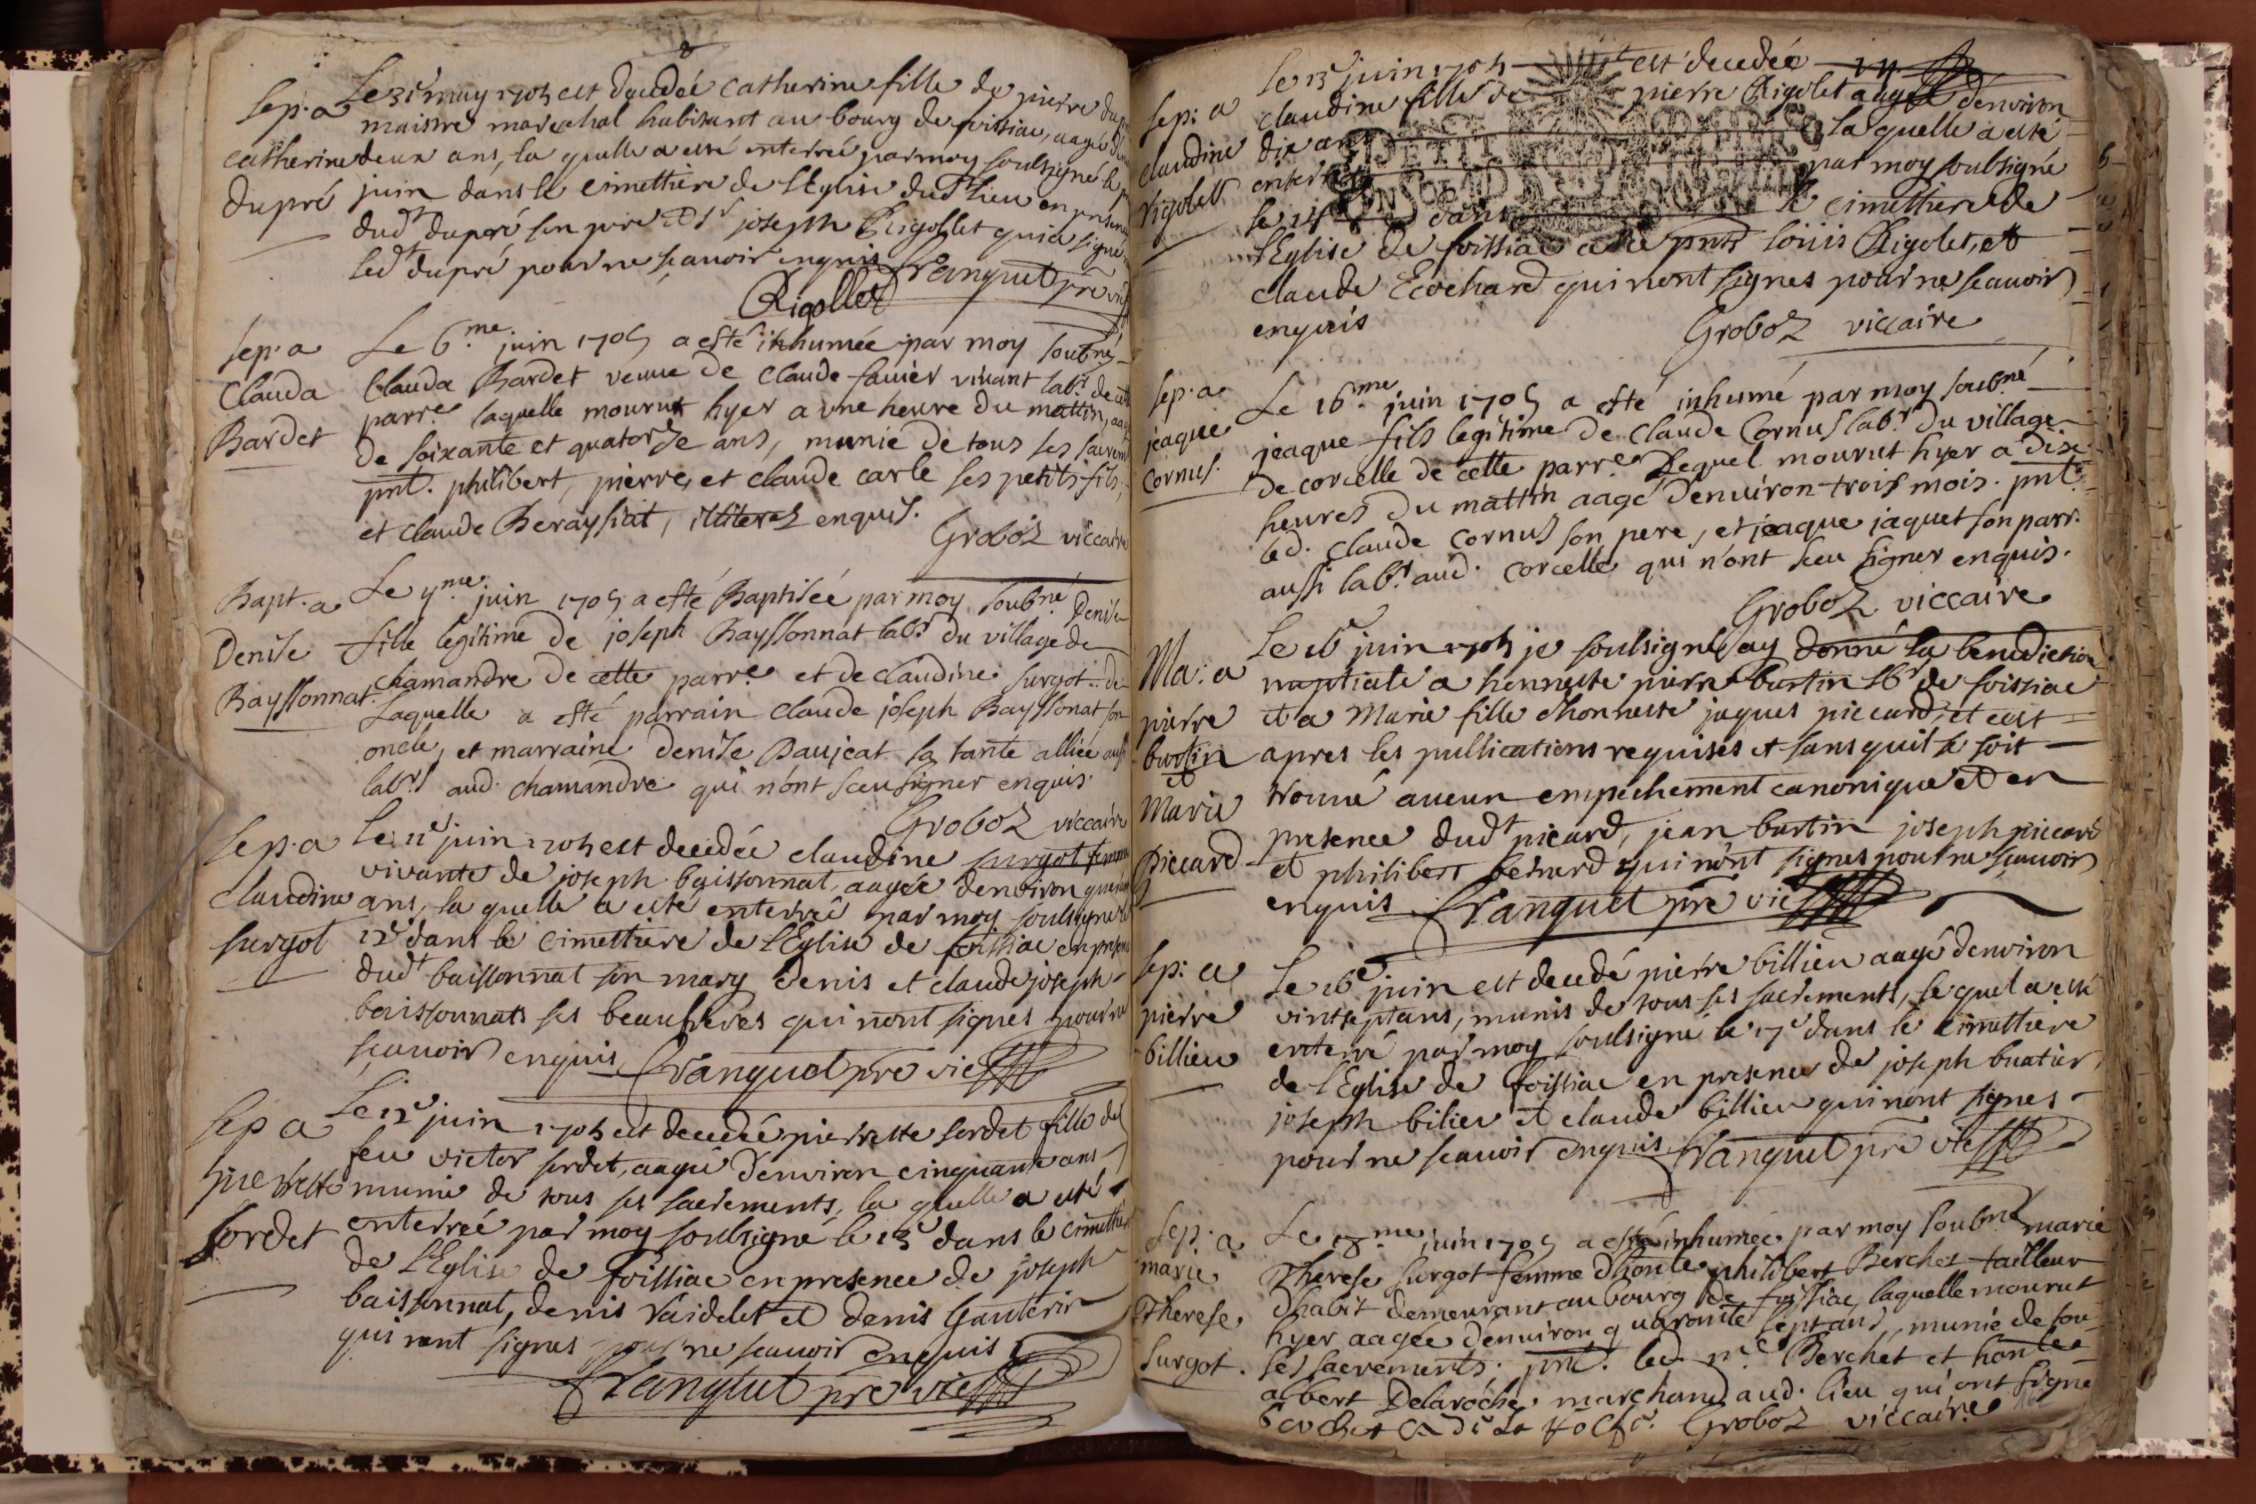 Le 31e may 1705 est decedée catherine fille de pierre
maistre marechal habitant au bourg de foissiac, aagée
deux ans, la quelle a esté enterrée par moy soubsigné le
juin dans le cimettiere de l'Eglise dudt lieu en
dudt dupré son pere et Sr joseph Rigollet qui a signé
ledt dupré pour ne sçavoir enquis franquet pre
Rigollet
Sep. a
catherine
dupré
Le 6.me juin 1705 a esté inhumée par moy soubné
Clauda Bardet veuve de Claude favier vivant labr. de
parre. laquelle mourut hyer a une heure du mattin,
de soixante et quatorze ans, munie de tous ses
pnt. philibert, pierre, et claude carle ses petits fils,
et claude Beraysiat, illiterez enquis.
Groboz viccaire
Sep. a
Clauda
Bardet
Le 9.me juin 1705 a esté Baptisée par moy soubné Denise
fille legitime de joseph Bayssonnat labr. du village de
chamandre de cette parre. et de claudine surgot. de
Laquelle a esté parrain claude joseph Bayssonat son
oncle, et marraine denise Baujeat sa tante alliée
labrs aud. chamandre qui n'ont sceu signer enquis.
Groboz viccaire
Bapt. a
Denise
Bayssonnat.
Le 11e juin 1705 est decedée claudine surgot femme
vivante de joseph baissonnat, aagée denviron
ans, la quelle a esté enterrée par moy soulsigné
12e dans le cimettiere de l'Eglise de foissiac en
dudt baissonnat son mary denis et claude joseph
baissonnats ses beaufreres qui n'ont signes pour ne
sçavoir enquis franquet pre vic
Sep. a
claudine
surgot
Le 12e juin 1705 est decedée pierrette sordet fille de
feu victor sordet, aagée d'environ cinquante ans
munie de tous ses sacrements, la quelle a esté
enterrée par moy soulsigné le 13e dans le cimettiere
de l'Eglise de foissiac en presence de joseph
baissonnat, denis vaidelet et denis Ganterin
qui n'ont signes pour ne scauoir enquis
franquet pre vic
Sep a
pierrette
sordet
Le 13e juin 1705 est decedée
claudine fille de pierre Rigolet aagée denviron
dix ans la quelle a esté
enterrée par moy soulsigné
le dans le cimettiere de
l'Eglise de foissiac a ce pnts loüis Rigolet, et
claude Ecochard qui n'ont signes pour ne scauoir
enquis Groboz viccaire
Sep: a
claudine
Rigolet
Le 16.me juin 1705 a esté inhumé par moy soubné
jeaque fils legitime de claude Cornus labr. du village
de corcelle de cette parre. Lequel mourut hyer a dix
heures du mattin aagé d'environ trois mois. pnt.
led. claude cornus son pere, et jeaque jaquet son parr.
aussi labr. aud. corcelle qui n'ont sceu signer enquis.
Groboz viccaire
Sep. a
jeaque
Cornus.
Le 16e juin 1705 je soulsigné ay donné la benediction
nuptiale a honneste pierre burtin de foissiac
et a Marie fille d'honneste jaques piccard, et cest
apres les pullications requises et sans quil se soit
trouvé aucun empechement canonique et en
presence dudt picard, jean burtin joseph piccard
et philibert qui n'ont signes pour ne sçauoir
enquis franquet pre vic
Ma: a
pierre
burtin
et
Marie
Piccard
Le 16e juin est decedé pierre billieu aagé denviron
vintsept ans, munis de tous ses sacrements, le quel a esté
enterré par moy soulsigné le 17e dans le cimettiere
de l'Eglise de foissiac en presence de joseph buatier,
joseph bilieu et claude billieu qui n'ont signes
pour ne scauoir enquis franquet pre vic
Sep: a
pierre
billieu
Le 18.me juin 1705 a esté inhumée par moy soubné marie
Therese surgot femme d'honte. philibert Berchet tailleur
d'habit demeurant au bourg de foissiac, laquelle mourut
hyer aagée d'environ quaronte sept ans, munie de tou
ses sacrements. pnt. led. Berchet et honte.
albert Delaroche marchand aud. lieu qui ont signé
Groboz viccaire
Sep. a
marie
Therese
Surgot.